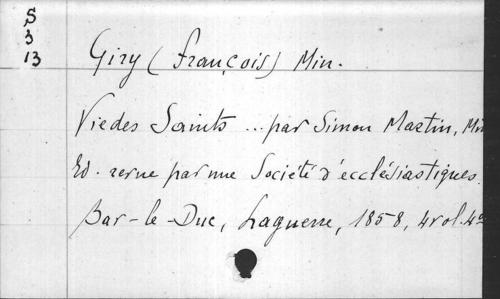 S
3
13
Giry (François) Min.
Vie des Saints ... par Simon Martin, Min
Ed. revue par une Société d'ecclésiastiques.
Bar-le-Duc, Laguerre, 1858, 4 vol. 4º